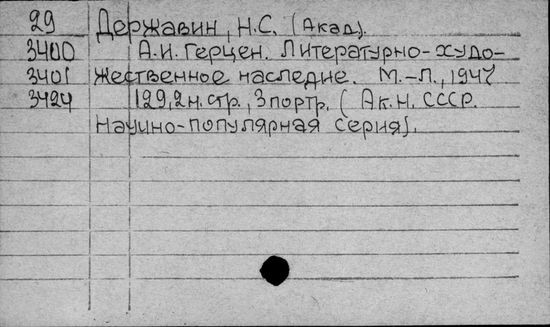 29 Державин, Н.С. (Акад).
3400 А.И. Герцен. Литературно-худо-
3401 жественное наследие. М.-Л., 1947
3424 129,2 н. стр., 3 портр. (Ак. Н. СССР.
Научно-популярная серия).